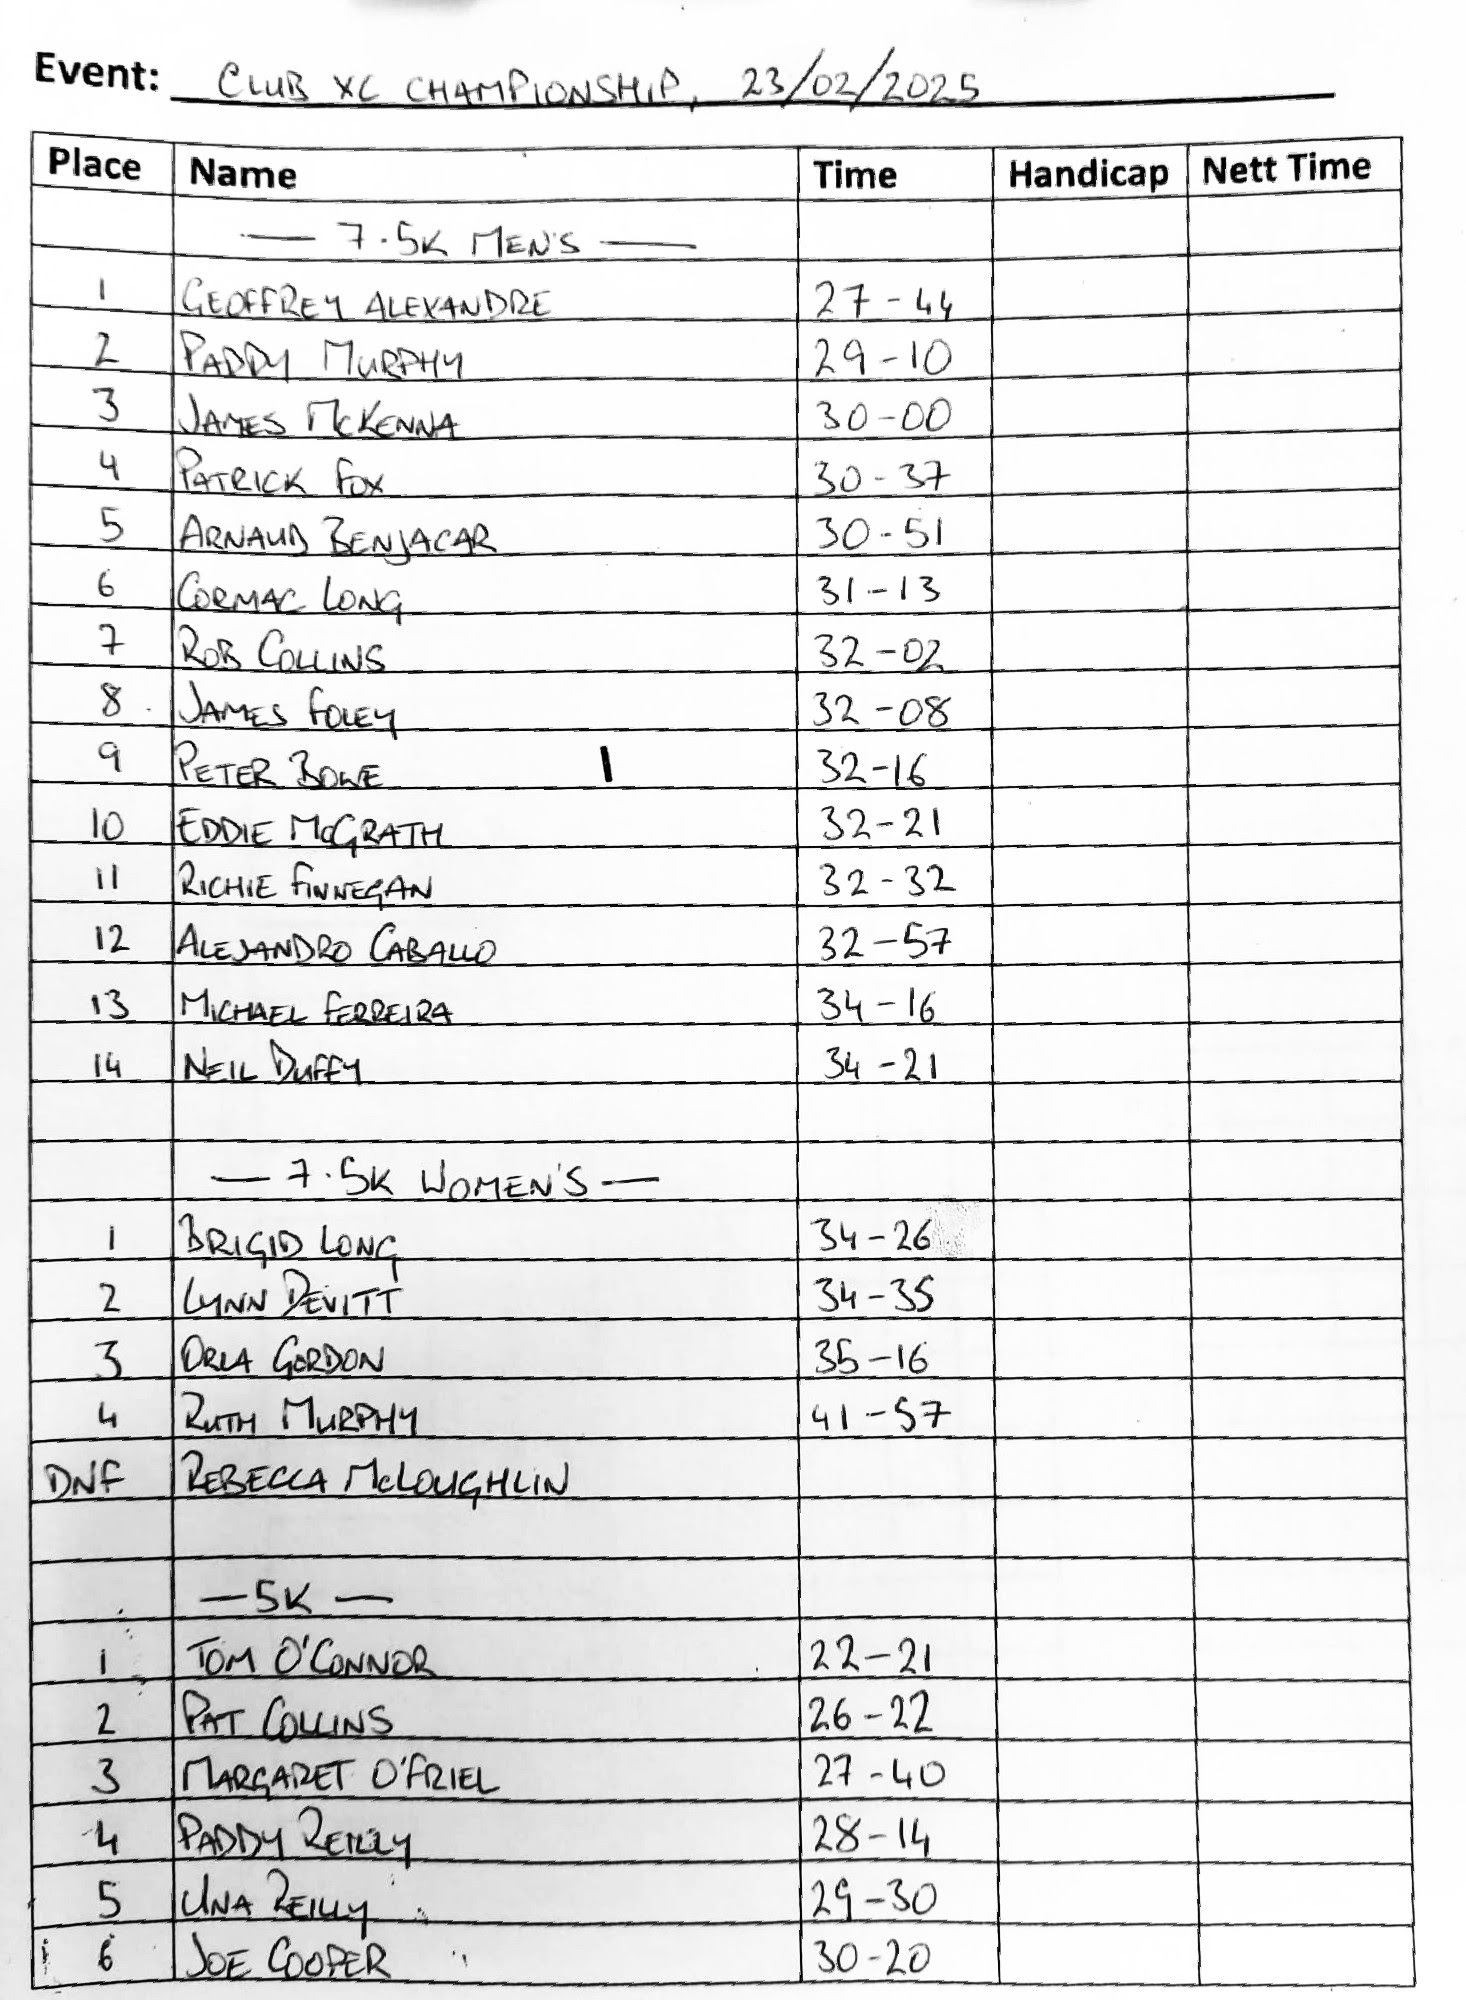 Event: CLUB XC CHAMPIONSHIP, 23/02/2025
Place Name Time Handicap Nett Time
— 7.5K MEN'S —
1 GEOFFREY ALEXANDRE 27-44
2 PADDY MURPHY 29-10
3 JAMES McKENNA 30-00
4 PATRICK FOX 30-37
5 ARNAUD BENJACAR 30-51
6 CORMAC LONG 31-13
7 ROB COLLINS 32-02
8 JAMES FOLEY 32-08
9 PETER BOWE 32-16
10 EDDIE McGRATH 32-21
11 RICHIE FINNEGAN 32-32
12 ALEJANDRO CABALLO 32-57
13 MICHAEL FERREIRA 34-16
14 NEIL DUFFY 34-21
— 7.5K WOMEN'S —
1 BRIGID LONG 34-26
2 LYNN DEVITT 34-35
3 ORLA GORDON 35-16
4 RUTH MURPHY 41-57
DNF REBECCA McLOUGHLIN
— 5K —
1 TOM O'CONNOR 22-21
2 PAT COLLINS 26-22
3 MARGARET O'FRIEL 27-40
4 PADDY REILLY 28-14
5 UNA REILLY 29-30
6 JOE COOPER 30-20